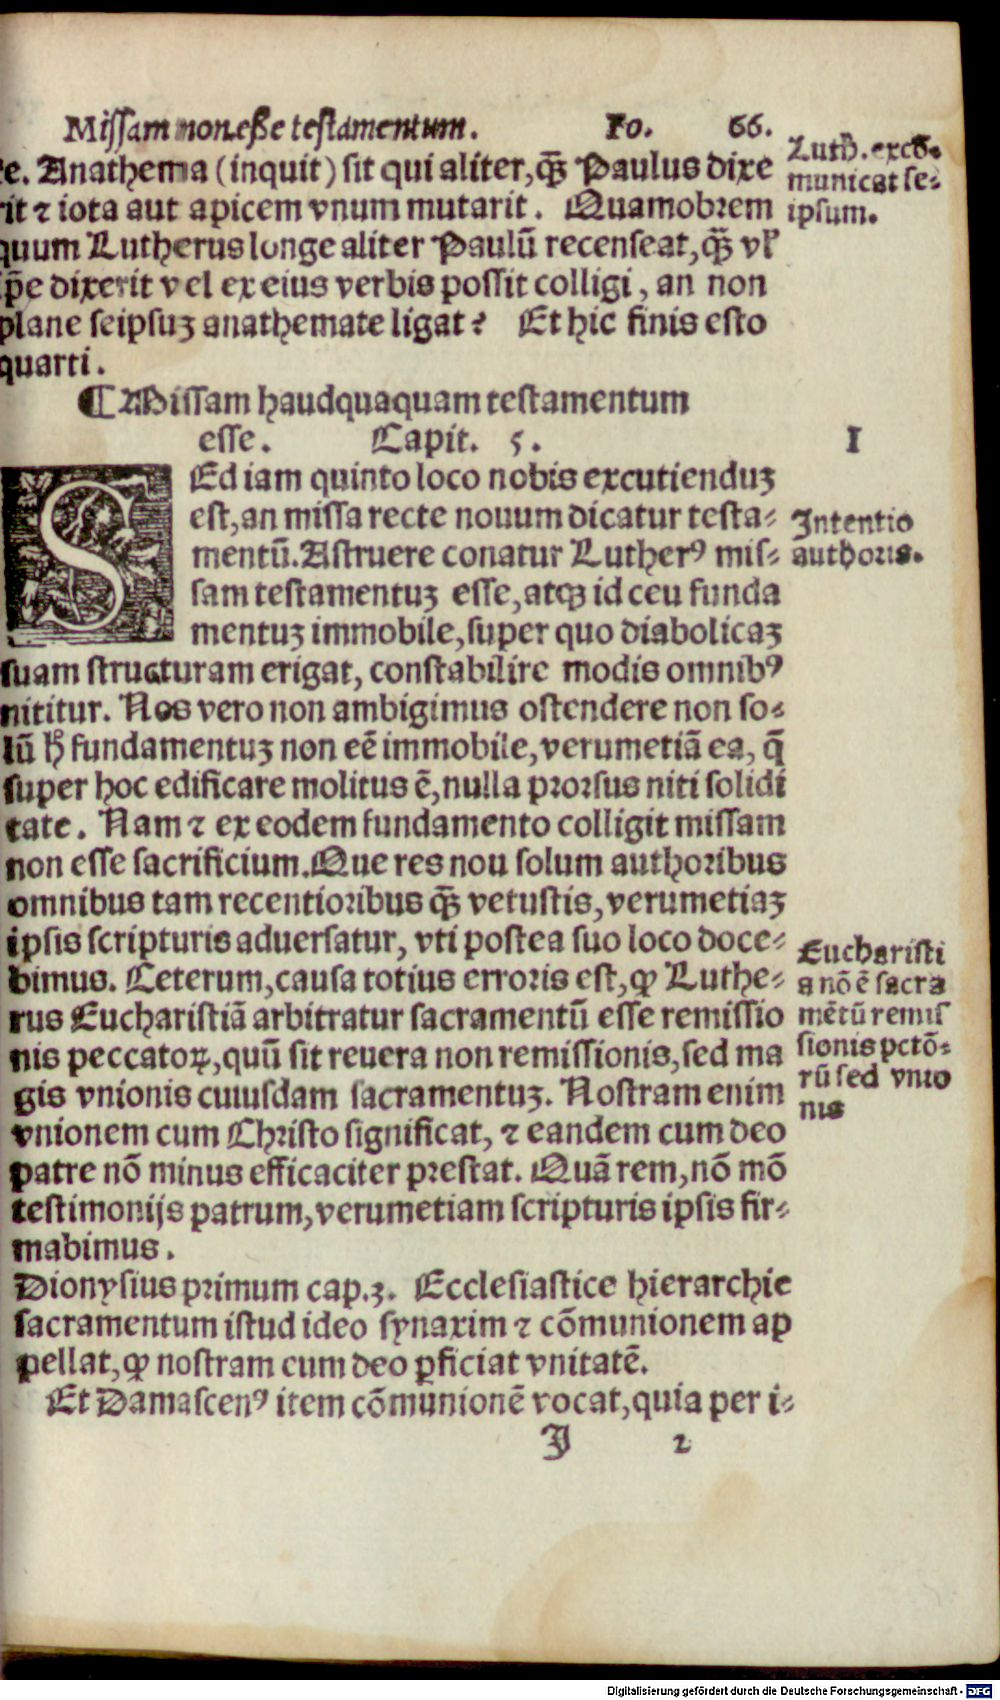 Missam non eße testamentum. Fo. 66.
te. Anathema (inquit) sit qui aliter, q̃ꝫ Paulus dixe
rit ⁊ iota aut apicem vnum mutarit. Quamobrem
quum Lutherus longe aliter Paulū recenseat, q̃ꝫ vl̓
ip̄e dixerit vel ex eius verbis possit colligi, an non
plane seipsuꝫ anathemate ligat? Et hic finis esto
quarti.
Luth. excō⸗
municat se⸗
ipsum.
¶ Missam haudquaquam testamentum
esse. Capit. 5.
I
SEd iam quinto loco nobis excutienduꝫ
est, an missa recte nouum dicatur testa⸗
mentū. Astruere conatur Lutherꝰ mis⸗
sam testamentuꝫ esse, atqꝫ id ceu funda
mentuꝫ immobile, super quo diabolicaꝫ
suam structuram erigat, constabilire modis omnibꝰ
nititur. Nos vero non ambigimus ostendere non so⸗
lū hꝰ fundamentuꝫ non eē immobile, verumetiā ea, q̄
super hoc edificare molitus ē, nulla prorsus niti solidi
tate. Nam ⁊ ex eodem fundamento colligit missam
non esse sacrificium. Que res nou solum authoribus
omnibus tam recentioribus q̃ꝫ vetustis, verumetiaꝫ
ipsis scripturis aduersatur, vti postea suo loco doce⸗
bimus. Ceterum, causa totius erroris est, ꝙ Luthe⸗
rus Eucharistiā arbitratur sacramentū esse remissio
nis peccatoꝝ, quū sit reuera non remissionis, sed ma
gis vnionis cuiusdam sacramentuꝫ. Nostram enim
vnionem cum Christo significat, ⁊ eandem cum deo
patre nō minus efficaciter prestat. Quā rem, nō mō
testimonijs patrum, verumetiam scripturis ipsis fir⸗
mabimus.
Intentio
authoris.
Eucharisti
a nō ē sacra
mētū remis
sionis pctō⸗
rū sed vnio
nis
Dionysius primum cap.3. Ecclesiastice hierarchie
sacramentum istud ideo synaxim ⁊ cōmunionem ap
pellat, ꝙ nostram cum deo ꝑficiat vnitatē.
Et Damascenꝰ item cōmunionē vocat, quia per i⸗
J 2
Digitalisierung gefördert durch die Deutsche Forschungsgemeinschaft - DFG